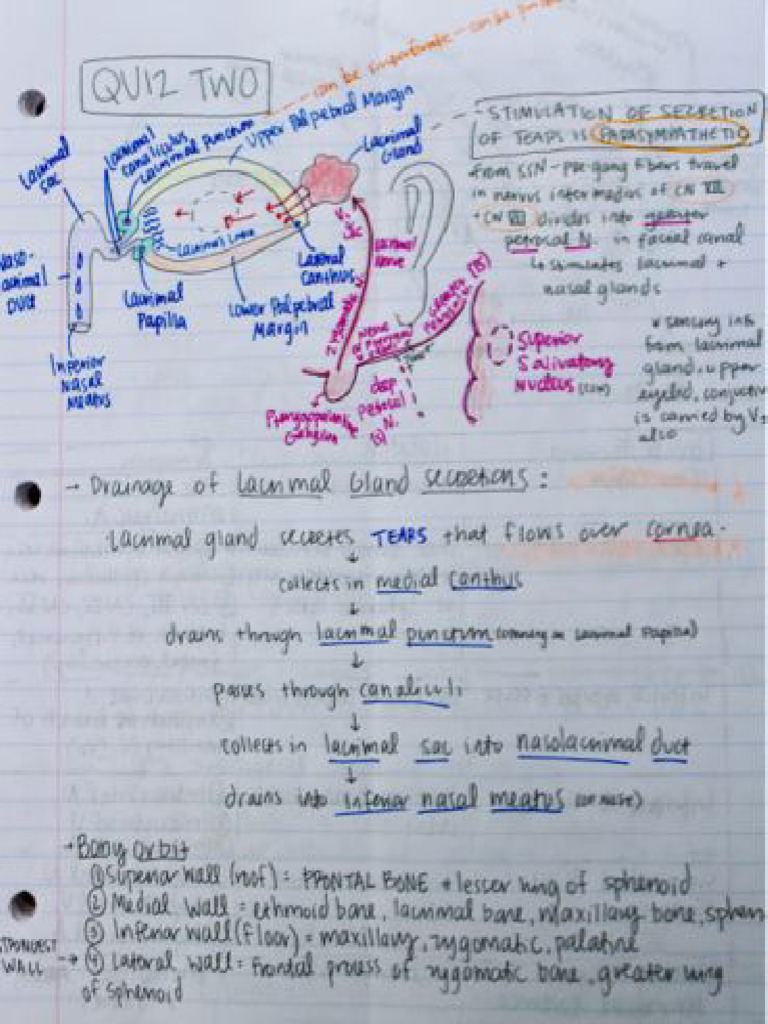 can be imperforate - can be
QUIZ TWO
Lacrimal Sac
Lacrimal canaliculus
Lacrimal punctum
Upper Palpebral Margin
Lacrimal Gland
Lacrimal
Lateral Canthus
Lacrimal Papilla
Lower Palpebral Margin
Inferior Nasal Meatus
Duct
STIMULATION OF SECRETION
OF TEARS IS PARASYMPATHETIC
from SSN - pre-gang fibers travel
in nervus intermedius of CN VII
+ CN VII divides into greater
petrosal N. in facial canal
↳ stimulates lacrimal +
nasal glands
Nerve
Superior Salivatory Nucleus
deep petrosal N.
Ganglion
* sensory info
from lacrimal
gland, upper
eyelid,
is carried by V₁
also
→ Drainage of Lacrimal Gland secretions:
Lacrimal gland secretes TEARS that flows over cornea.
↓
collects in medial canthus
↓
drains through lacrimal punctum (opening on Lacrimal Papilla)
↓
passes through canaliculi
↓
collects in lacrimal sac into nasolacrimal duct
↓
drains into inferior nasal meatus (of nose)
→ Bony orbit
① Superior wall (roof) = FRONTAL BONE + lesser wing of sphenoid
② Medial wall = ethmoid bone, lacrimal bone, maxillary bone, sphen
③ Inferior wall (floor) = maxillary, zygomatic, palatine
STRONGEST WALL → ④ Lateral wall = frontal process of zygomatic bone, greater wing
of sphenoid